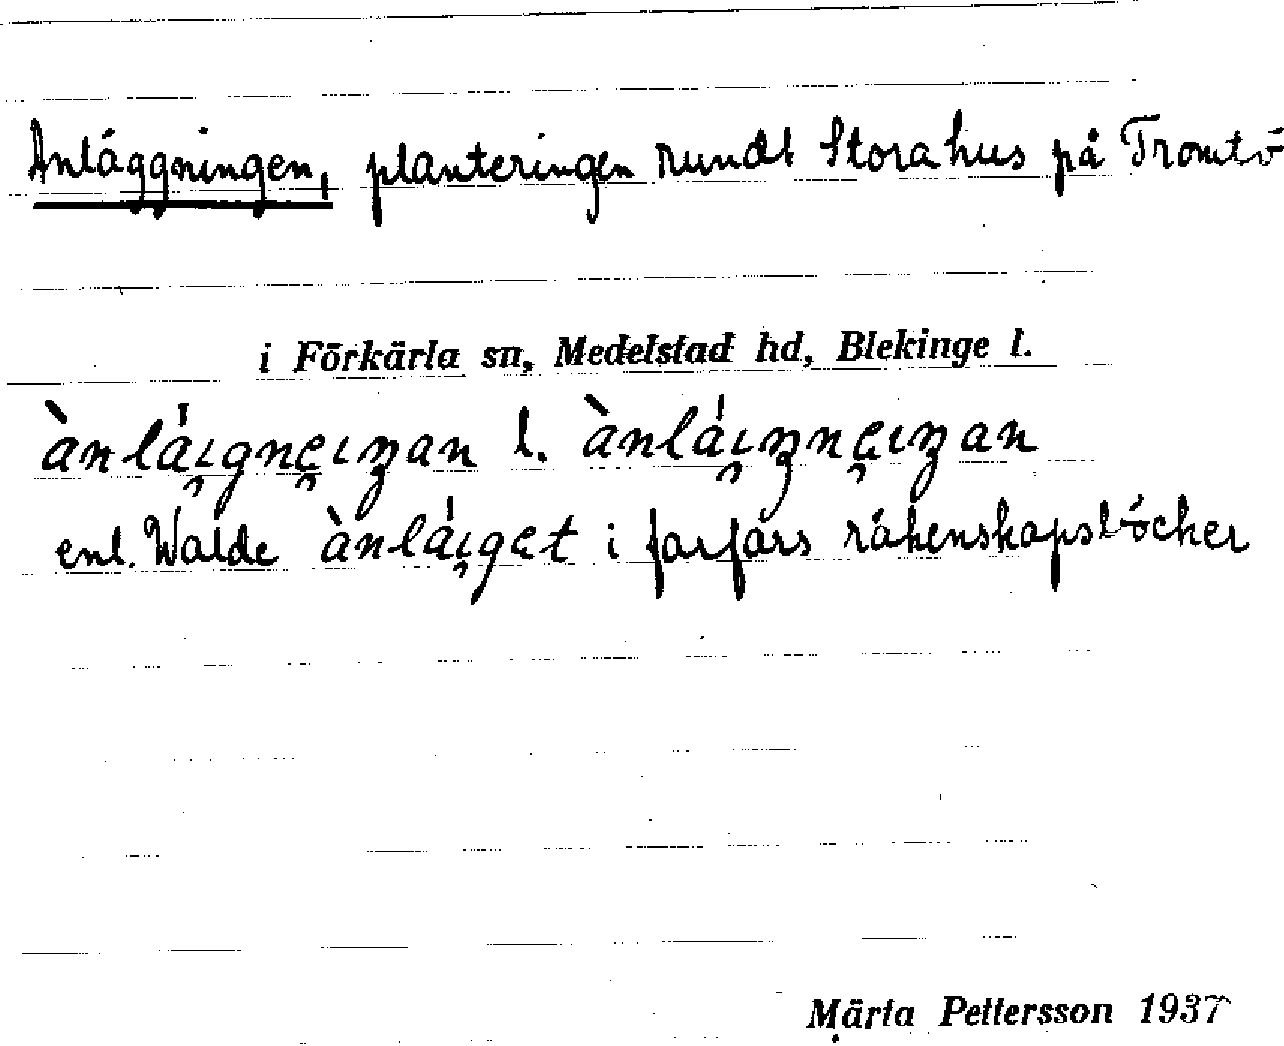 Anläggningen, planteringen rundt Stora hus på Tromtö
i Förkärla sn, Medelstad hd, Blekinge l.
l.
enl. Walde i farfars räkenskapsböcker
Märta Pettersson 1937